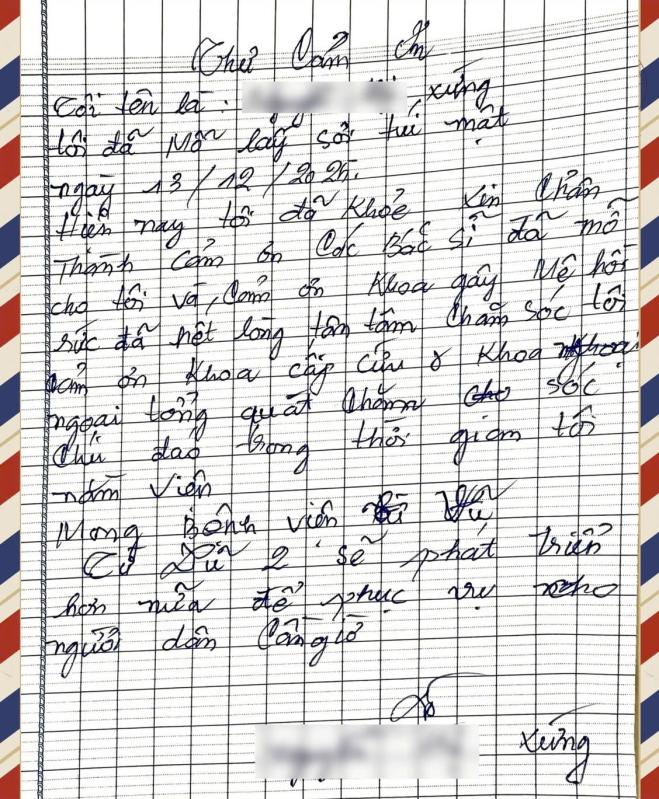 Thư Cảm Ơn
Tôi tên là: xứng
tôi đã Mỗ lấy sỏi túi mật
ngày 13/12/2025.
Hiện nay tôi đã khoẻ xin Chân
Thành cảm ơn Các Bác sĩ đã mỗ
cho tôi và, Cảm ơn Khoa gây Mê hồi
sức đã hết lòng tận tâm Chăm sóc tôi
cảm ơn Khoa cấp cứu & Khoa
ngoại tổng quát Chăm sóc
Chu đáo trong thời gian tôi
nằm viện
Mong Bệnh viện
Từ Dũ 2 sẽ phát triển
hơn nữa để phục vụ cho
người dân Cần giờ
Xứng